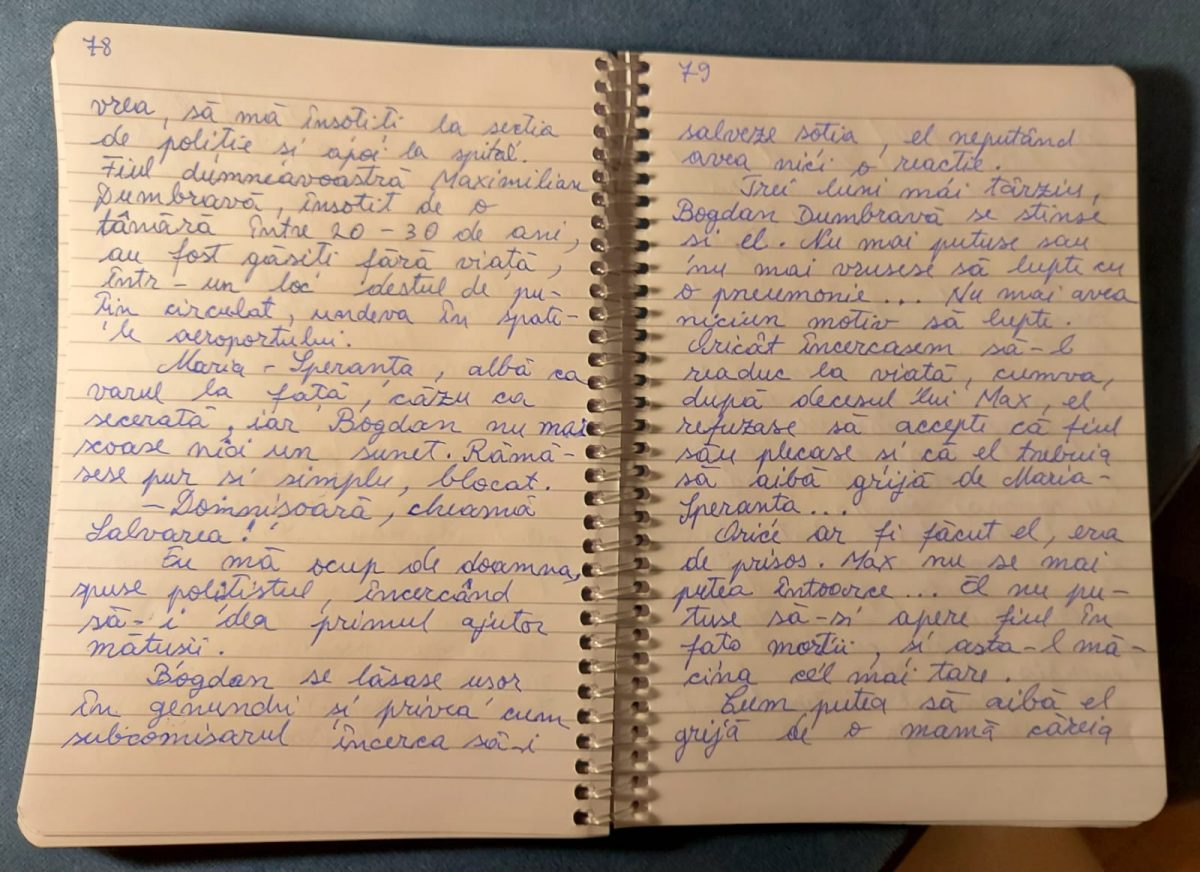 78
vrea, să mă însotiti la sectia
de politie si apoi la spital.
Fiul dumneavoastră Maximilian
Dumbravă, însotit de o
tâmără între 20 - 30 de ani,
au fost găsiti fără viată,
într - un loc destul de pu-
tin circulat, undeva în spate-
le aeroportului.
Maria - Speranta, albă ca
varul la fată, căzu ca
secerată, iar Bogdan nu mai
scoase nici un sunet. Rămă-
sese pur si simplu, blocat.
- Domnisoară, cheamă
Salvarea!
Eu mă ocup de doamna,
spuse politistul, încercând
să-i dea primul ajutor
mătusii.
Bogdan se lăsase usor
în genunchi si privea cum
subcomisarul încerca să-i
79
salveze sotia, el neputând
avea nici o reactie.
Trei luni mai târziu,
Bogdan Dumbravă se stinse
si el. Nu mai putuse sau
nu mai vrusese să lupte cu
o pneumonie... Nu mai avea
niciun motiv să lupte.
Oricât încercasem să-l
readuc la viată, cumva,
după decesul lui Max, el
refuzase să accepte că fiul
său plecase si că el trebuia
să aibă grijă de Maria-
Speranta...
Orice ar fi făcut el, era
de prisos. Max nu se mai
putea întoarce... El nu pu-
tuse să-si apere fiul în
fata mortii, si asta-l mă-
cina cel mai tare.
Cum putea să aibă el
grijă de o mamă căreia